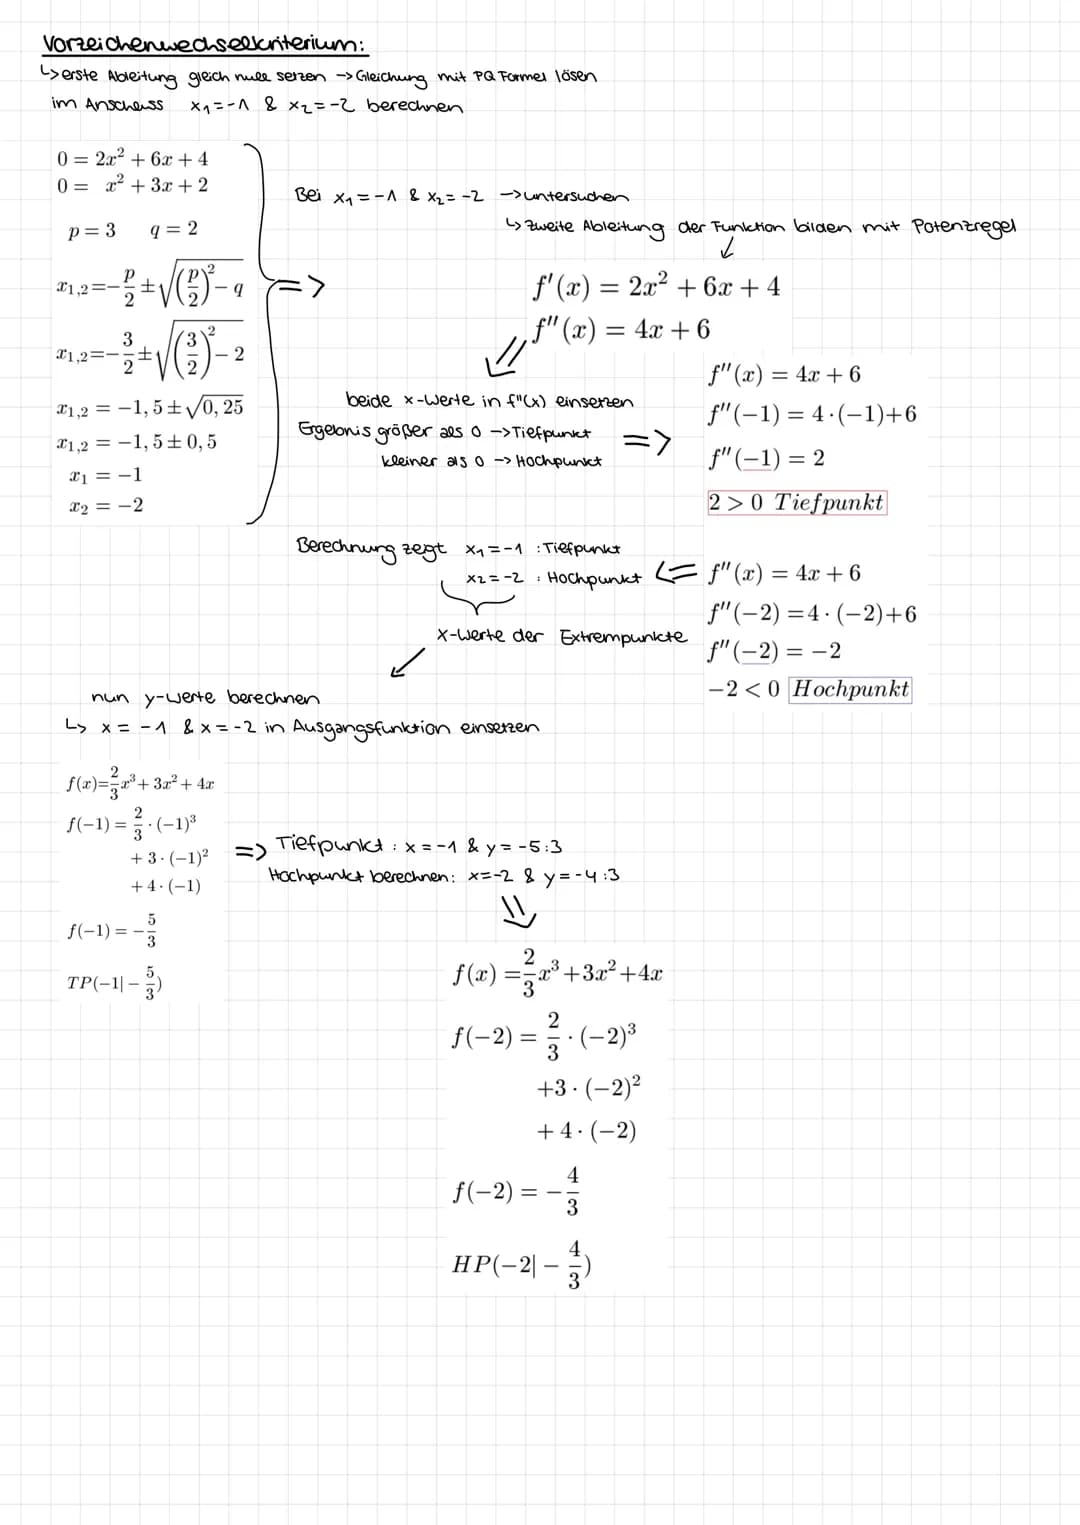 Vorzeichenwechselkriterium:
↳ erste Ableitung gleich null setzen -> Gleichung mit PQ Formel lösen
im Anschluss x₁=-1 & x₂=-2 berechnen
0 = 2x² + 6x + 4
0 = x² + 3x + 2
p = 3 q = 2
x₁,₂ = -p/2 ± √((p/2)² - q)
x₁,₂ = -3/2 ± √((3/2)² - 2)
x₁,₂ = -1,5 ± √0,25
x₁,₂ = -1,5 ± 0,5
x₁ = -1
x₂ = -2
=>
Bei x₁=-1 & x₂=-2 -> untersuchen
↳ zweite Ableitung der Funktion bilden mit Potenzregel
f'(x) = 2x² + 6x + 4
f''(x) = 4x + 6
beide x-Werte in f''(x) einsetzen
Ergebnis größer als 0 -> Tiefpunkt
kleiner als 0 -> Hochpunkt
=>
f''(x) = 4x + 6
f''(-1) = 4·(-1)+6
f''(-1) = 2
2 > 0 Tiefpunkt
f''(x) = 4x + 6
f''(-2) = 4·(-2)+6
f''(-2) = -2
-2 < 0 Hochpunkt
<=
Berechnung zegt x₁=-1 : Tiefpunkt
x₂=-2 : Hochpunkt
x-Werte der Extrempunkte
nun y-werte berechnen
↳ x = -1 & x = -2 in Ausgangsfunktion einsetzen
f(x)=2/3x³+3x²+4x
f(-1) = 2/3·(-1)³
+3·(-1)²
+4·(-1)
f(-1) = -5/3
TP(-1|-5/3)
=> Tiefpunkt : x = -1 & y = -5:3
Hochpunkt berechnen: x=-2 & y=-4:3
f(x) = 2/3x³+3x²+4x
f(-2) = 2/3·(-2)³
+3·(-2)²
+4·(-2)
f(-2) = -4/3
HP(-2|-4/3)